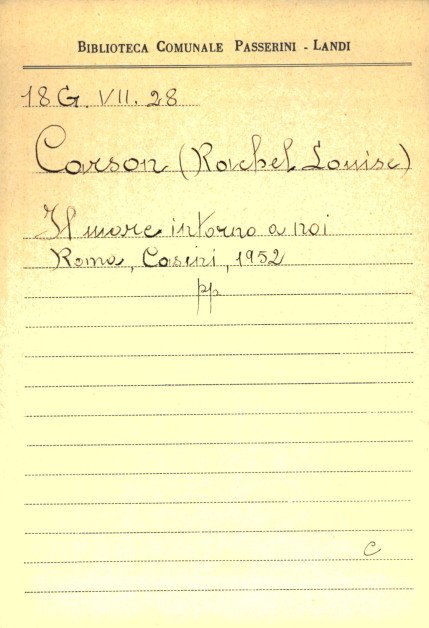 BIBLIOTECA COMUNALE PASSERINI - LANDI
18 G. VII. 28
Carson (Rachel Louise)
Il mare intorno a noi
Roma, Casini, 1952
pp
C